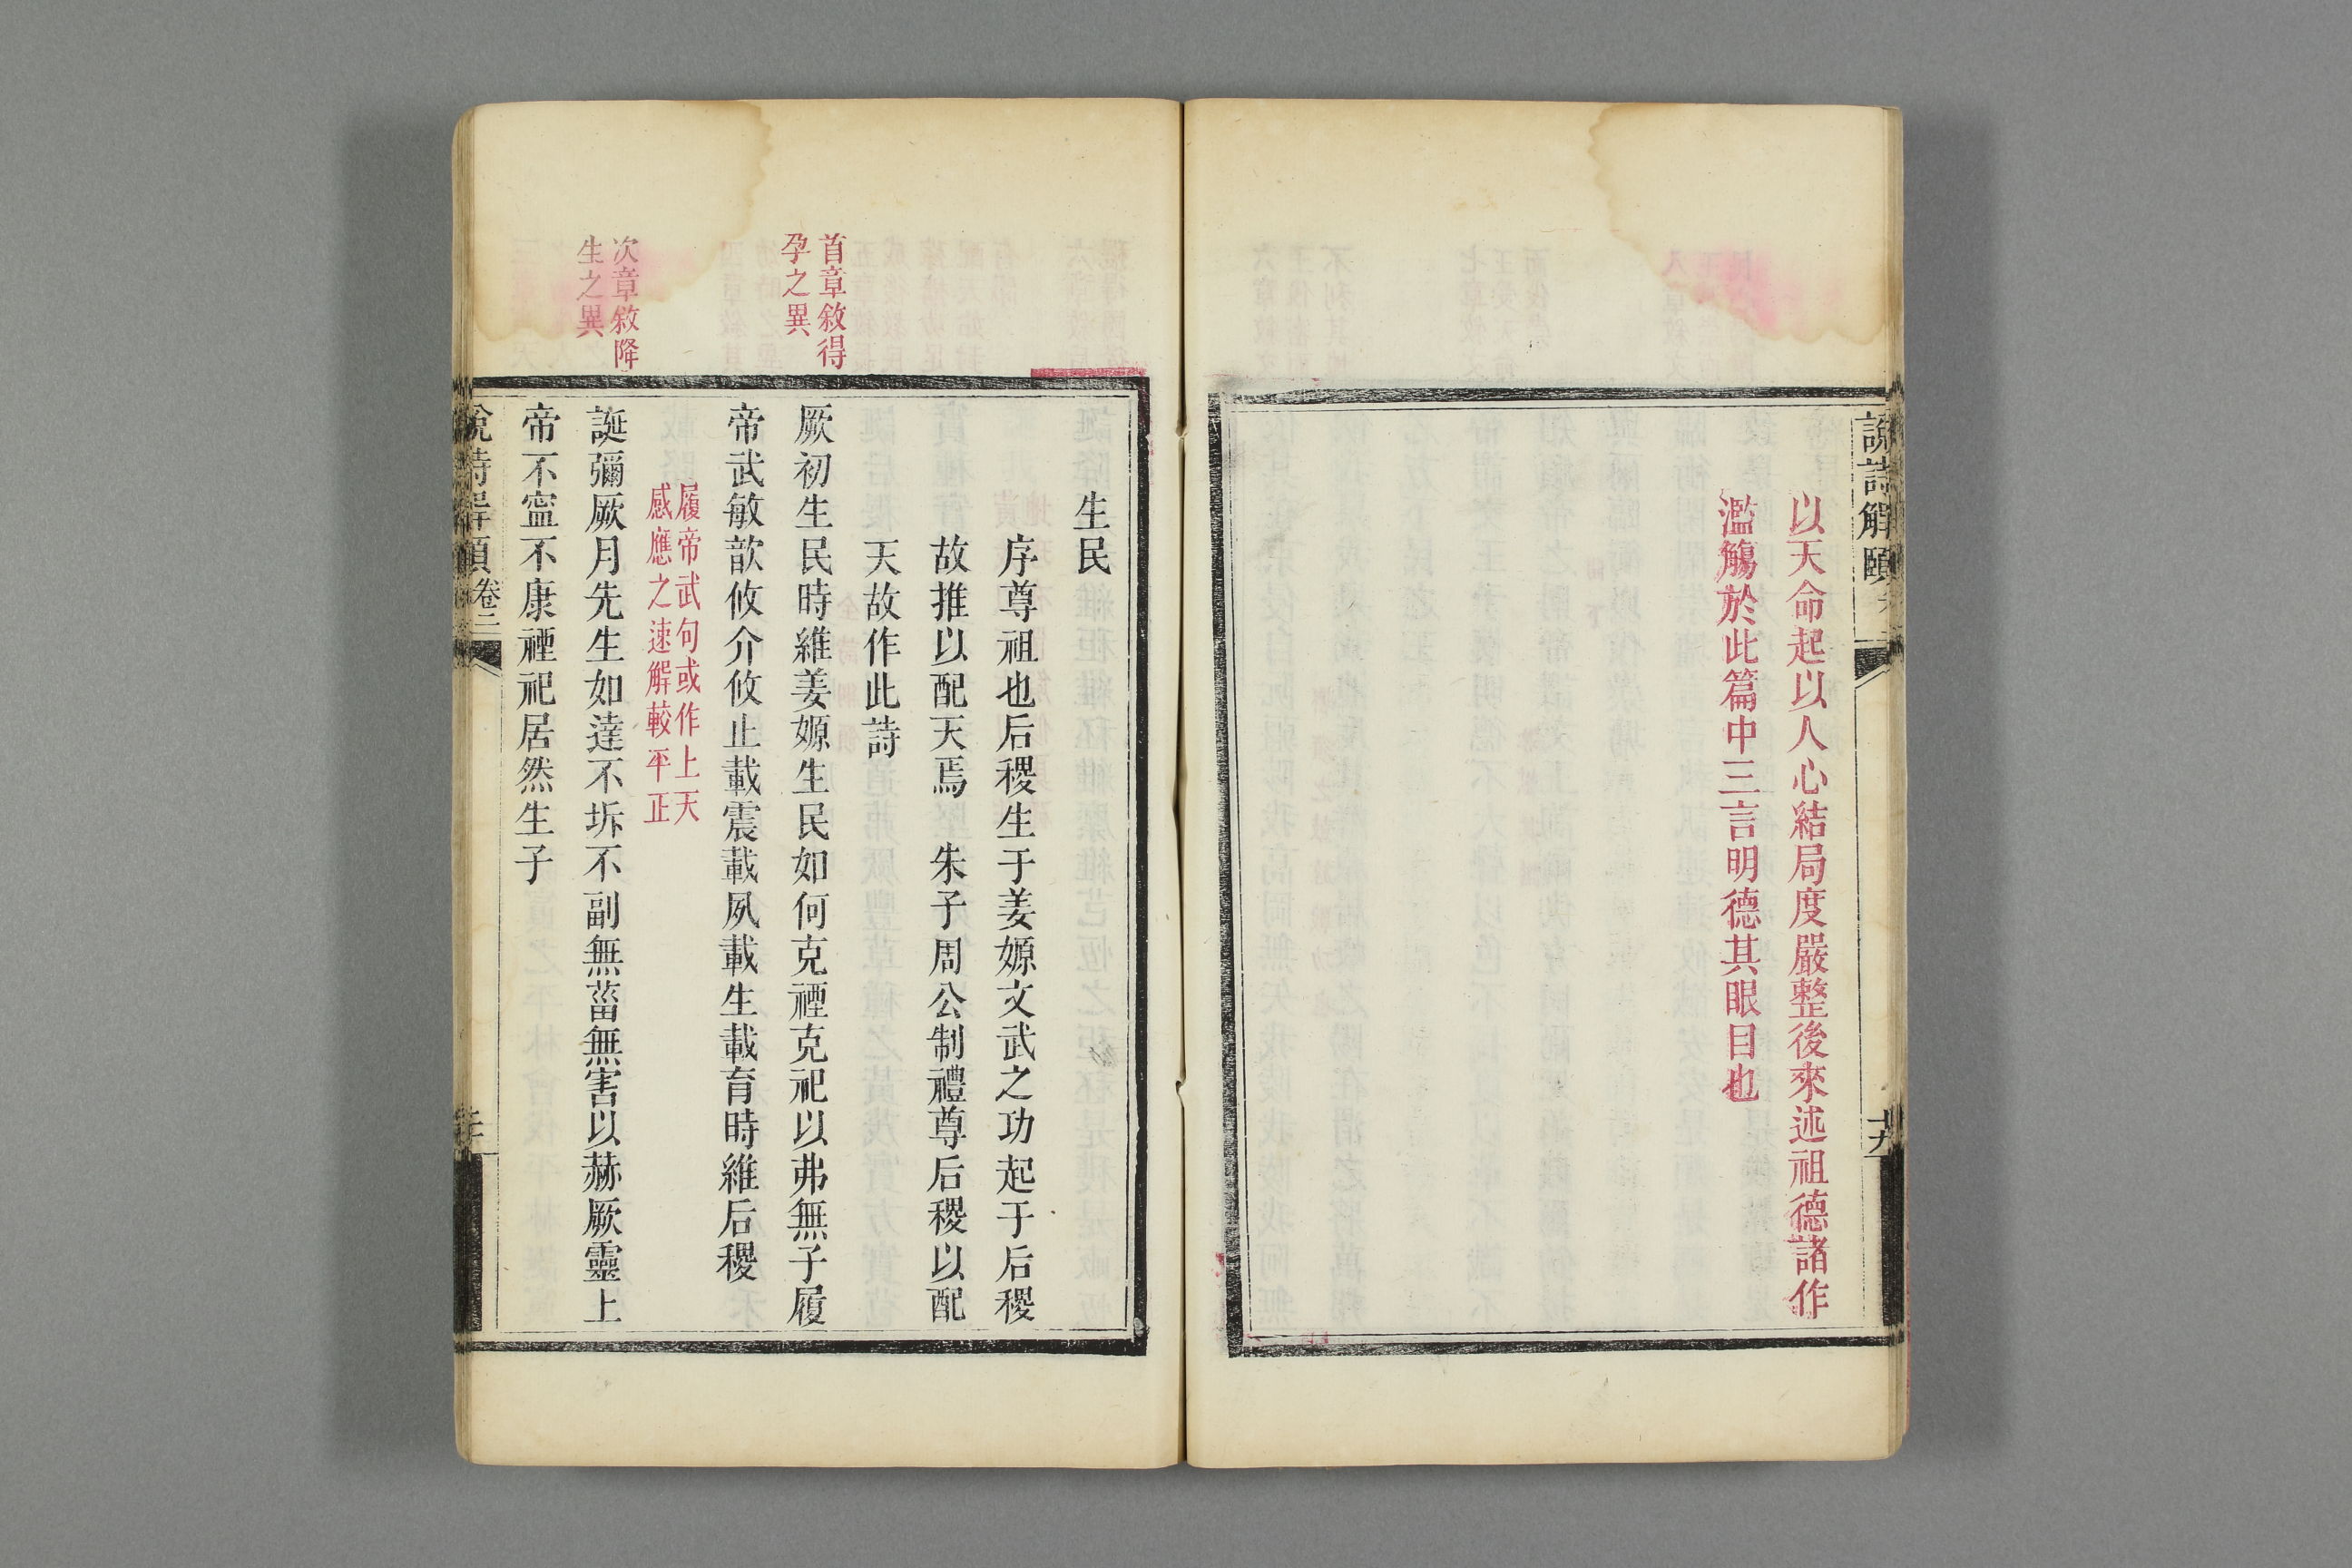 說詩解頤
十九
以天命起以人心結局度嚴整後來述祖德諸作
濫觴於此篇中三言明德其眼目也
生民
序尊祖也后稷生于姜嫄文武之功起于后稷
故推以配天焉　朱子周公制禮尊后稷以配
天故作此詩
首章敘得
孕之異
厥初生民時維姜嫄生民如何克禋克祀以弗無子履
帝武敏歆攸介攸止載震載夙載生載育時維后稷
履帝武句或作上天
感應之速解較平正
次章敘降
生之異
誕彌厥月先生如達不坼不副無菑無害以赫厥靈上
帝不寧不康禋祀居然生子
說詩解頤 卷二